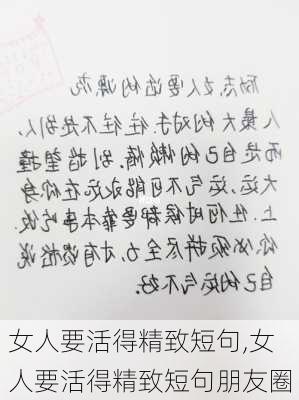 励志,女人要活的漂亮
人最大的对手.往往不是别人,
而是自己的懒惰,别指望撞
大运,运气不可能永远在你身
上.任何时候都要靠本事吃饭.
你必须拼尽全力,才有资格说
自己的运气不好.
女人要活得精致短句,女
人要活得精致短句朋友圈